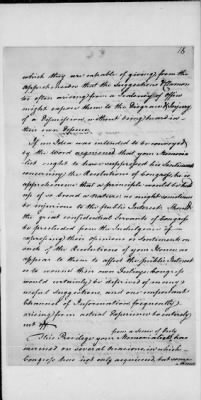 16
which they are capable of giving, from the
Apprehension that the Suggestions
too often arising from a Tediousness of Office
might expose them to the Disgrace & Injury
of a Deposition, without being heard in
their own Defence.
If an Idea was intended to be conveyed
by the Word expressed that your Memoria-
list ought to have suppressed his Sentiments
concerning the Resolutions of Congress he is
apprehensive that a principle would be laid
up of so broad a Nature as might sometimes
be injurious to the public Interest. Should
the great confidential Servants of Congress
be precluded from the Indulgence of
expressing their opinions or Sentiments on
such of the Resolutions of your Honors, as
appear to them to affect the public Interest
or to wound their own feelings Congress
would certainly be deprived of many
useful Suggestions, and one important
Channel of Information frequently
arising from actual Experience be entirely
cut off.
from a Sense of Duty
This Privilege your Memorialist has
exercised on several Occasions, in which
Congress have not only acquiesced, but some-